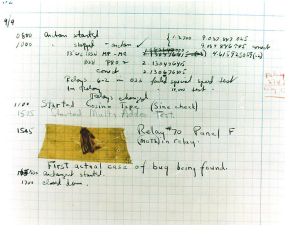 9/9
0800 Antan started
1000 " stopped - antan ✓
13" MC MP - MC
033 PRO 2 2.130476415
correct 2.130676415
Relays 6-2 in 033 failed special speed test
in relay " test
Relays changed
1100 Started Cosine Tape (Sine check)
1525 Started Multi Adder Test.
1545 Relay #70 Panel F
(moth) in relay.
First actual case of bug being found.
antangent started.
1700 closed down.